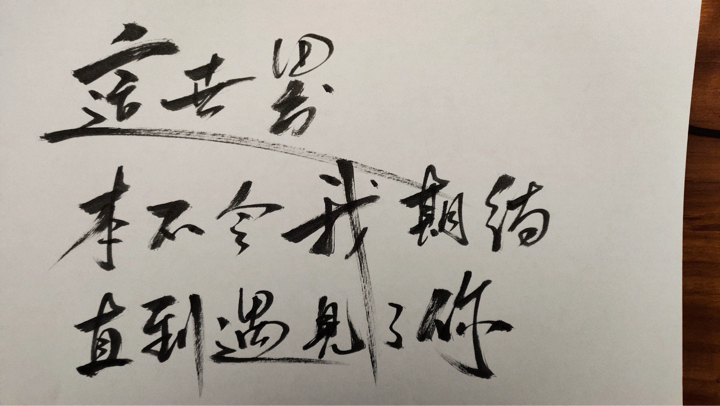 這世界
本不令我期待
直到遇見了你